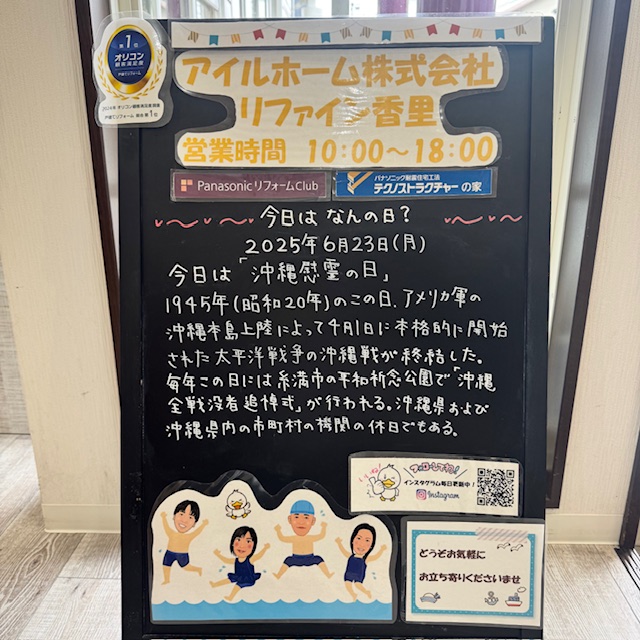 第1位
オリコン
顧客満足度
戸建てリフォーム
アイルホーム株式会社
リファイン香里
営業時間 10:00～18:00
Panasonic リフォームClub
パナソニック耐震住宅工法
テクノストラクチャーの家
今日は なんの日？
2025年6月23日(月)
今日は「沖縄慰霊の日」
1945年(昭和20年)のこの日、アメリカ軍の
沖縄本島上陸によって4月1日に本格的に開始
された太平洋戦争の沖縄戦が終結した。
毎年この日には糸満市の平和祈念公園で「沖縄
全戦没者追悼式」が行われる。沖縄県および
沖縄県内の市町村の機関の休日でもある。
いいね!
フォローしてね!
インスタグラム毎日更新中！
Instagram
どうぞお気軽に
お立ち寄りくださいませ